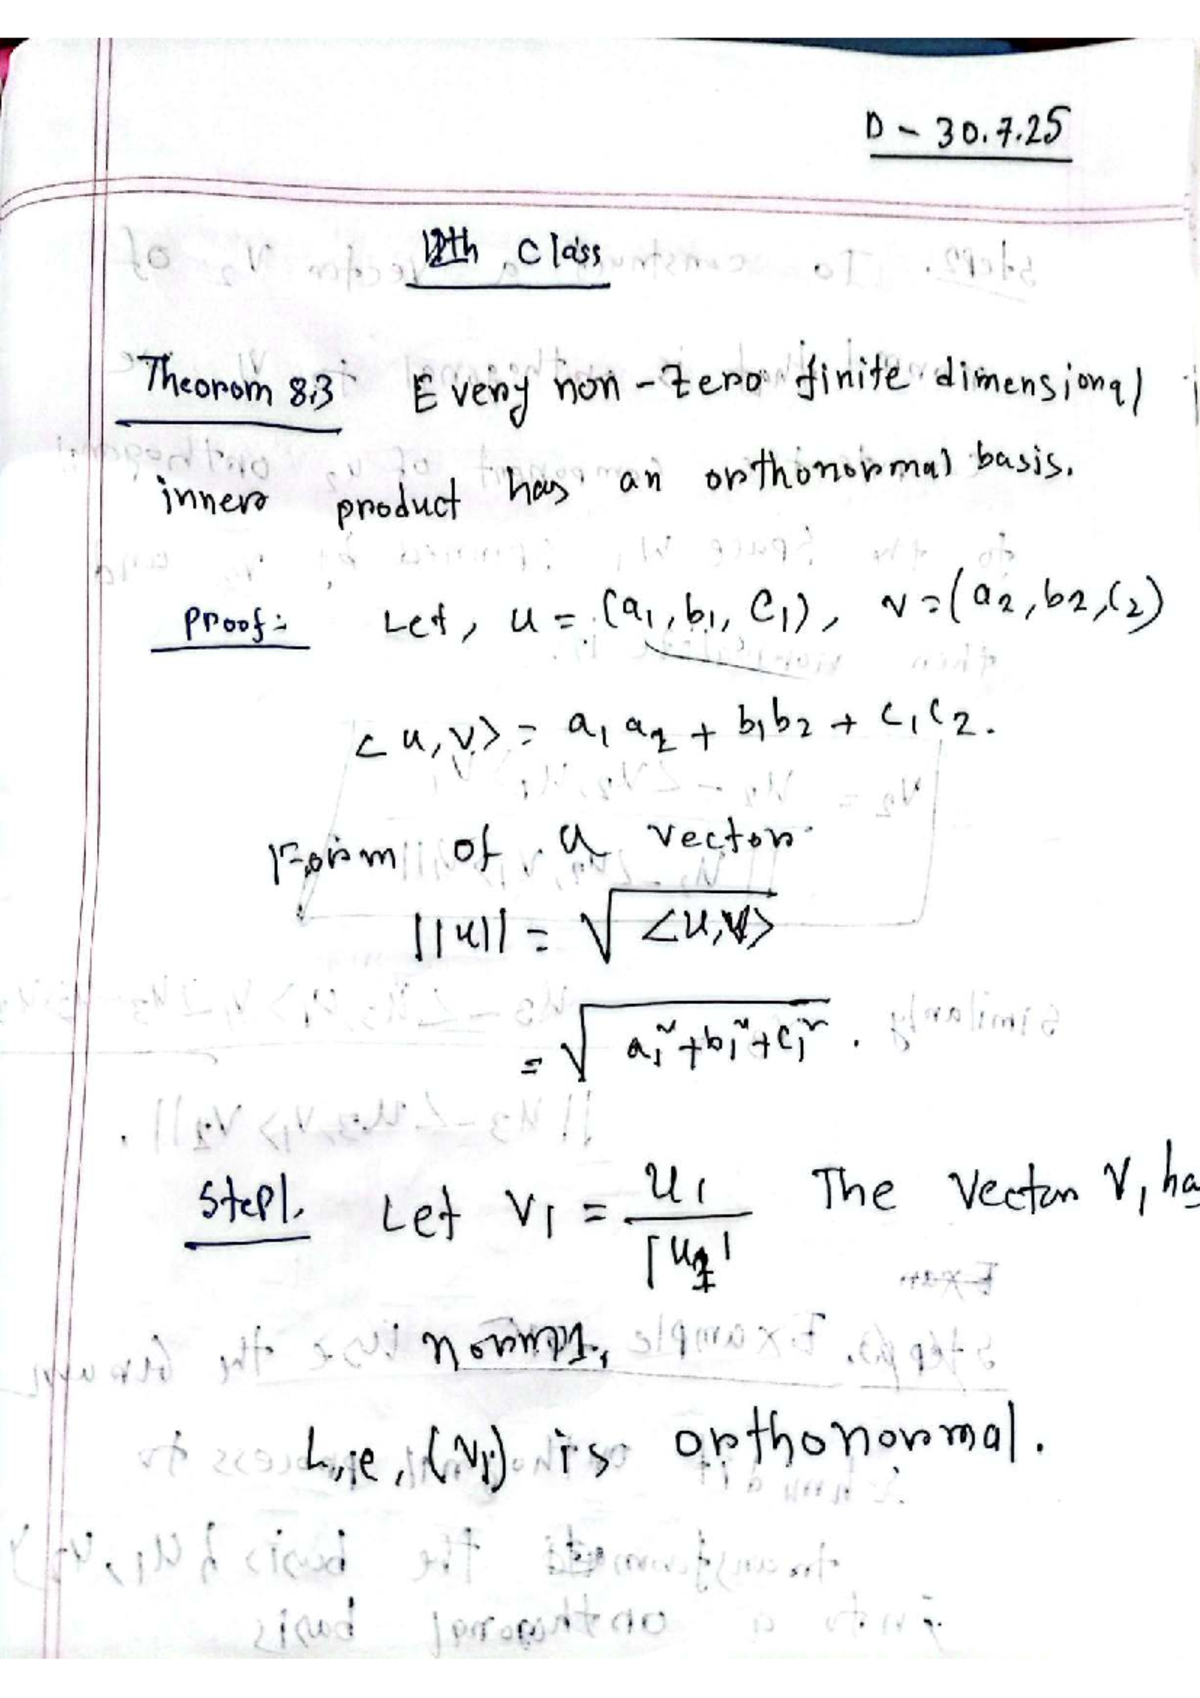 D - 30.7.25
12th Class
Theorom 8.3 Every non-zero finite dimensional
inner product has an orthonormal basis.
Proof:- Let, u = (a₁, b₁, c₁), v = (a₂, b₂, c₂)
<u, v> = a₁a₂ + b₁b₂ + c₁c₂.
Form of a vector
||u|| = √<u,u>
= √a₁²+b₁²+c₁².
Step1. Let v₁ = u₁/||u₁|| The Vector v₁ ha
norm 1.
i,e, (v₁) is orthonormal.